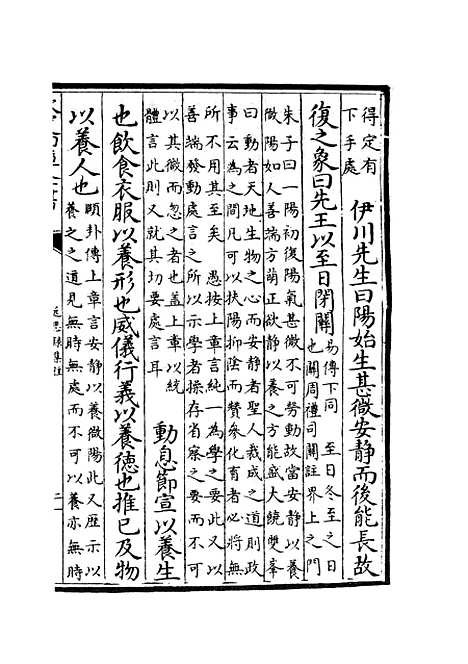 得定有
下手處
伊川先生曰陽始生甚微安靜而後能長故
復之象曰先王以至日閉關
易傳下同 至日冬至之日
也關周禮司關註界上之門
朱子曰一陽初復陽氣甚微不可勞動故當安靜以養
微陽如人善端方萌正欲靜以養之方能盛大饒雙峯
曰動者天地生物之心而安靜者聖人裁成之道則政
事云為之間凡可以扶陽抑陰而贊參化育者必將無
所不用其至矣 愚按上章言純一為學之要此又以
善端發動處言之所以示學者操存省察之要而不可
以其微而忽之者也蓋上章以統
體言此則又就其切要處言耳
動息節宣以養生
也飲食衣服以養形也威儀行義以養德也推已及物
以養人也
頤卦傳上章言安靜以養微陽此又歷示以
養之之道見無時無處而不可以養亦無時
近思錄集註